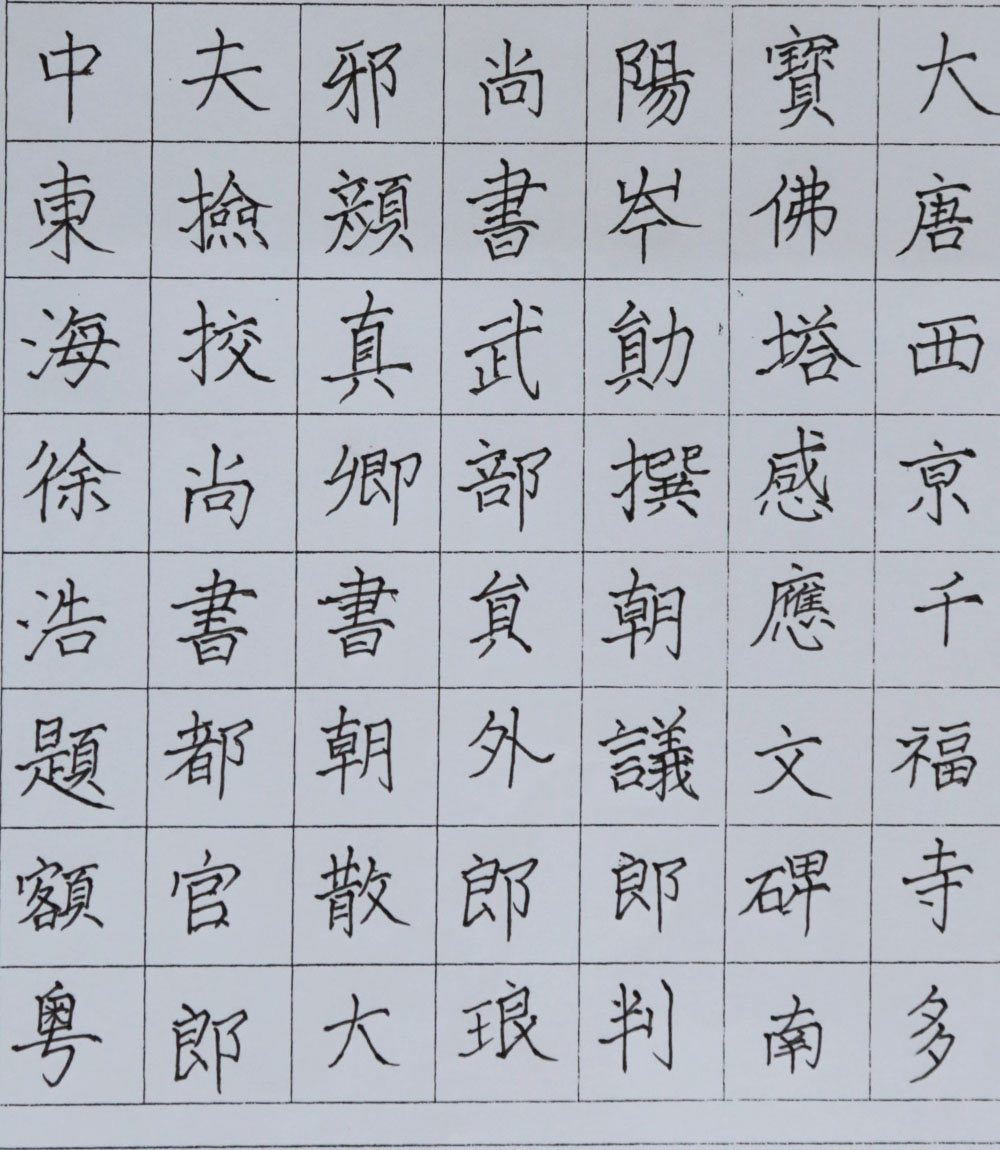 大唐西亰千福寺多
寶佛塔感應文碑南
陽岑勛撰朝議郎判
尚書武部貟外郎琅
邪顔真卿書朝散大
夫撿挍尚書都官郎
中東海徐浩題額粤